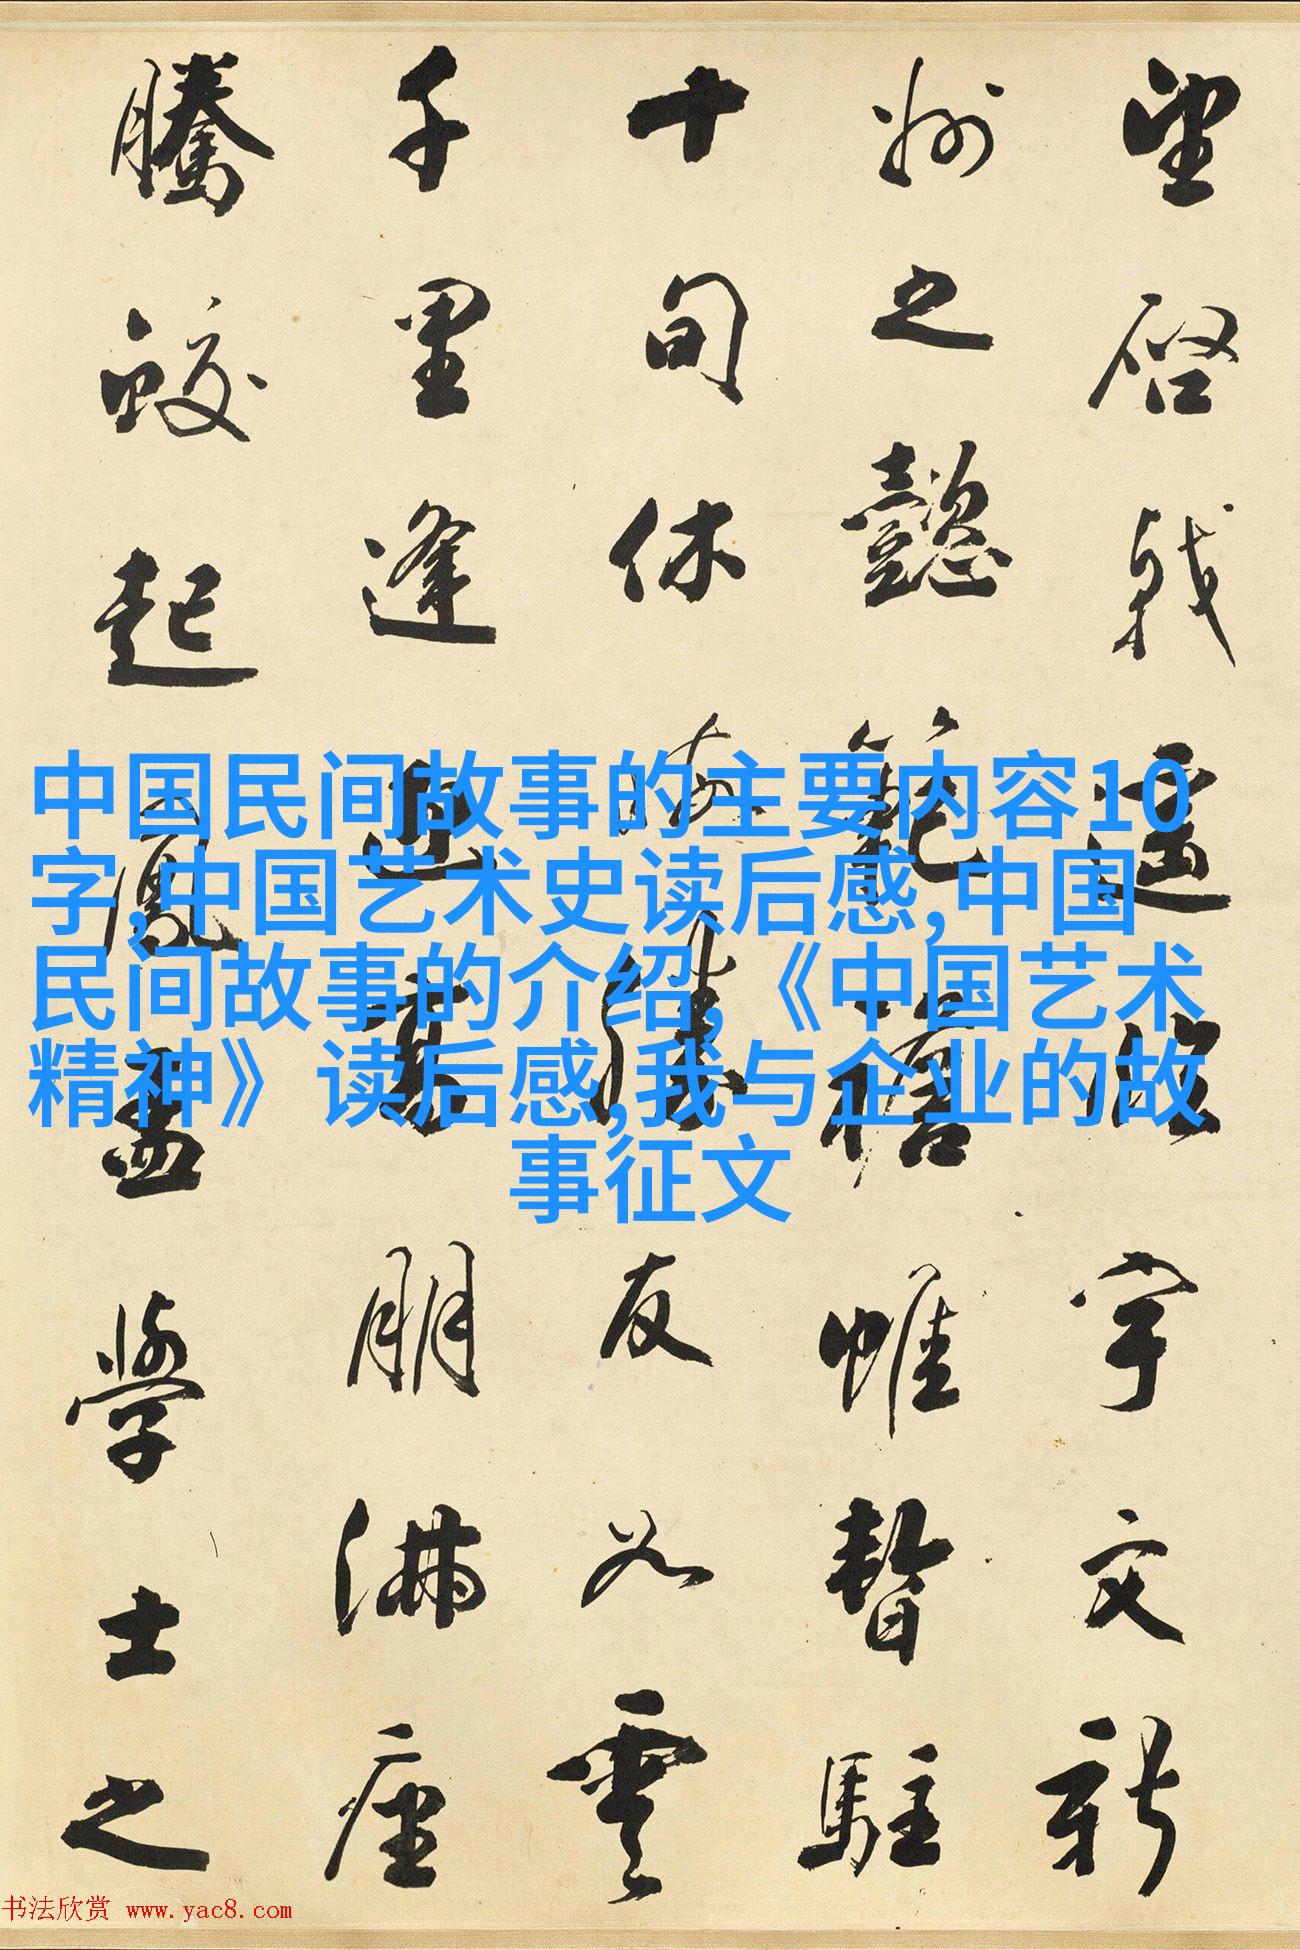 望啓戟遥临宇文新
州之懿範襜帷暫駐
十旬休勝友如雲
千里逢迎高朋满座
騰蛟起鳳孟學士之
中国民间故事的主要内容10
字,中国艺术史读后感,中国
民间故事的介绍,《中国艺术
精神》读后感,我与企业的故
事征文
书法欣赏 www.yac8.com